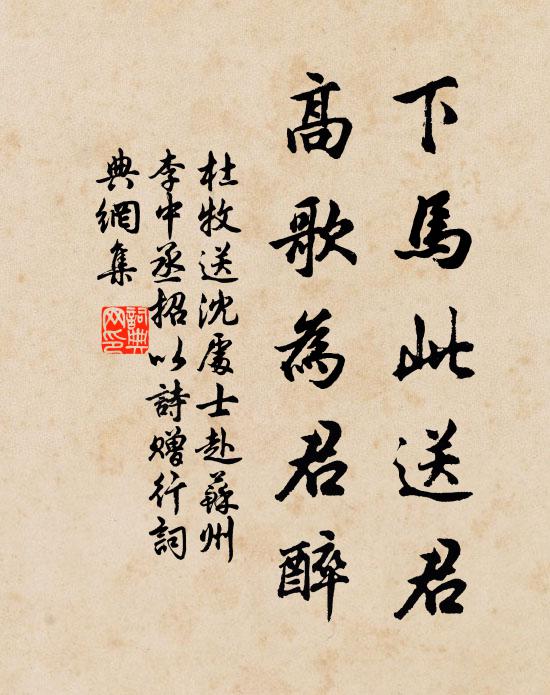 下馬此送君
高歌為君醉
杜牧送沈處士赴蘇州
李中丞招以詩贈行詞
典網集
詞典
网印